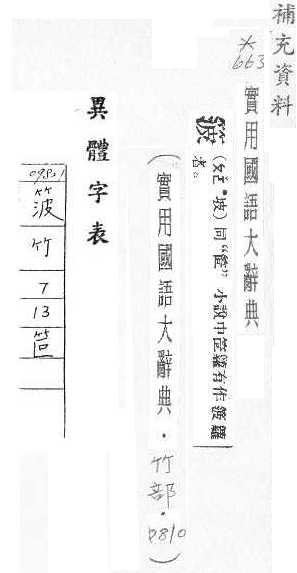 補充資料
*663
實用國語大辭典
箥 (ㄆㄛˊ坡) 同“笸”小說中笸籮有作箥籮
者。
(實用國語大辭典・竹部・P810)
異體字表
箥
竹
7
13
笸